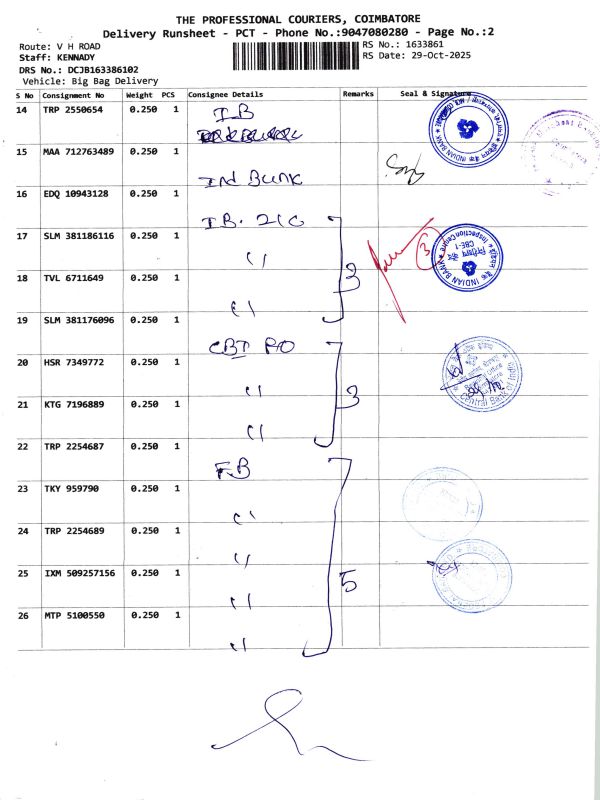 THE PROFESSIONAL COURIERS, COIMBATORE
Delivery Runsheet - PCT - Phone No.:9047080280 - Page No.:2
Route: V H ROAD
RS No.: 1633861
Staff: KENNADY
RS Date: 29-Oct-2025
DRS No.: DCJB163386102
Vehicle: Big Bag Delivery
S No Consignment No Weight PCS Consignee Details Remarks Seal & Signature
14 TRP 2550654 0.250 1 I B
15 MAA 712763489 0.250 1 Ind Bunk
16 EDQ 10943128 0.250 1 I B. 210
17 SLM 381186116 0.250 1 "
18 TVL 6711649 0.250 1 " 3
19 SLM 381176096 0.250 1 CBI RO
20 HSR 7349772 0.250 1 "
21 KTG 7196889 0.250 1 " 3
22 TRP 2254687 0.250 1 F.B
23 TKY 959790 0.250 1 "
24 TRP 2254689 0.250 1 "
25 IXM 509257156 0.250 1 " 5
26 MTP 5100550 0.250 1 "
INDIAN BANK
3
INDIAN BANK
Inspection Centre
CBE-1
Central Bank of India